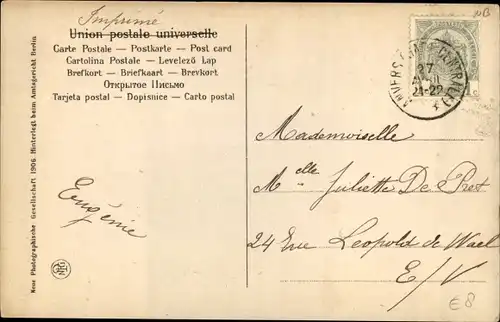 Imprimé
Union postale universelle
Carte Postale — Postkarte — Post card
Cartolina Postale — Levelező Lap
Brefkort — Briefkaart — Brevkort
Открытое Письмо
Tarjeta postal — Dopisnice — Carto postal
ANVERS CENTRAL
27
21-22
Mademoiselle
Melle Juliette De Prest
24 Rue Leopold de Wael
E/V
Eugénie
Neue Photographische Gesellschaft 1906. Hinterlegt beim Amtsgericht Berlin
NPG
€8